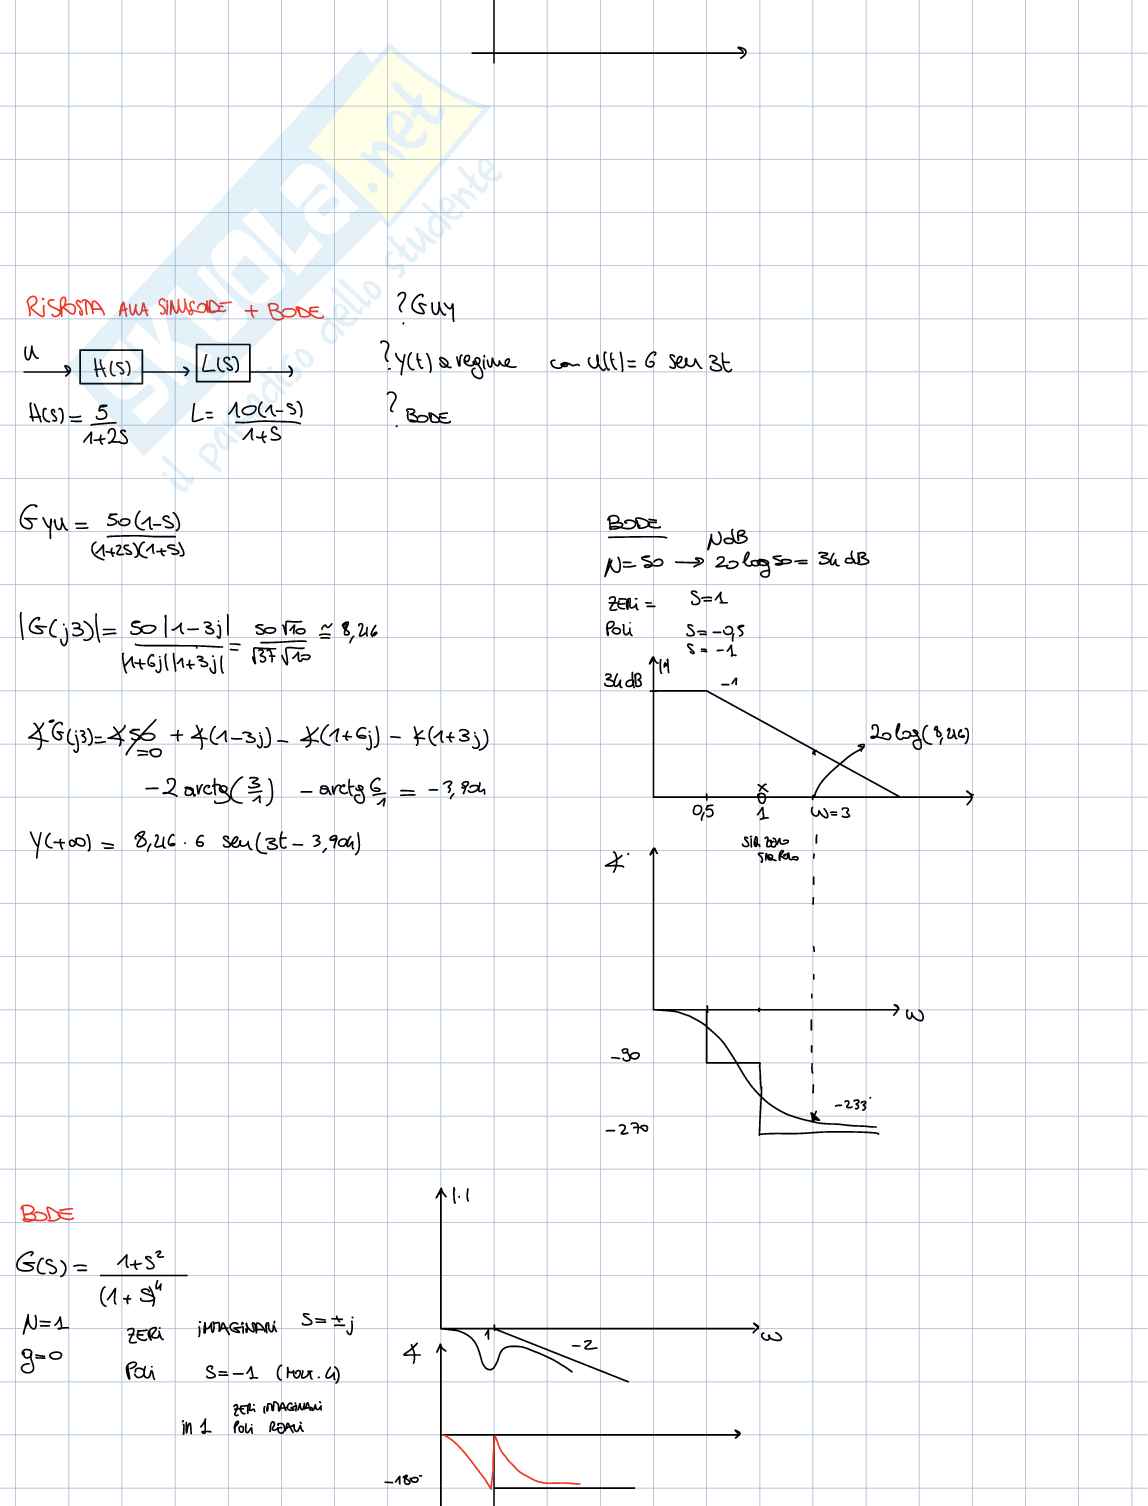 SKUOLA.net
il paradiso dello studente
RISPOSTA ALLA SINUSOIDE + BODE
? Guy
u H(S) L(S)
? y(t) a regime con u(t) = 6 sen 3t
H(S) = 5/(1+2S) L = 10(1-S)/(1+S)
? BODE
Gyu = 50(1-S)/((1+2S)(1+S))
BODE
NdB
N=50 → 20 log 50 = 34 dB
ZERI = S=1
POLI S=-0,5
S=-1
|G(j3)| = 50|1-3j|/(|1+6j||1+3j|) = 50√10/(√37 √10) ≅ 8,216
34 dB |·| -1
20 log(8,216)
0,5 1 ω=3
SIA ZERO
SIA POLO
∡G(j3) = ∡50 + ∡(1-3j) - ∡(1+6j) - ∡(1+3j)
=0
-2 arctg(3/1) - arctg 6/1 = -3,904
Y(+∞) = 8,216 · 6 sen(3t - 3,904)
∡
ω
-90
-233°
-270
BODE
|·|
G(S) = (1+S²)/(1+S)⁴
N=1
g=0
ZERI IMMAGINARI S=±j
POLI S=-1 (MOLT. 4)
in 1 ZERI IMMAGINARI
POLI REALI
1 -2 ω
∡
-180°